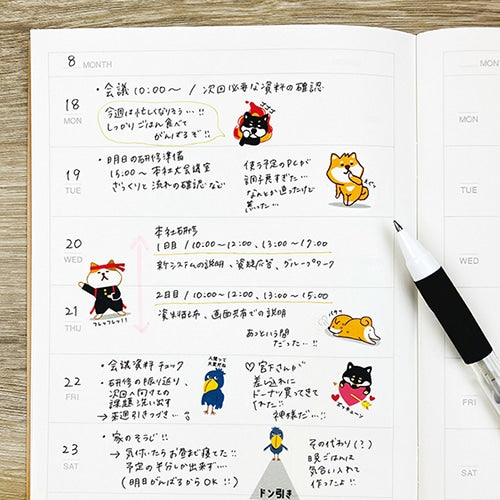 8 MONTH
18 MON
・会議 10:00～ / 次回必要な資料の確認
今週は忙しくなりそう…!!
しっかりごはん食べて
がんばるぞ!!
19 TUE
・明日の研修準備
15:00～ 本社大会議室
ざっくりと流れの確認など
使う予定のPCが
調子悪すぎた…
なんとか直ったけど
焦った…
20 WED
本社研修
1日目 / 10:00～12:00、13:00～17:00
新システムの説明、質疑応答、グループワーク
フレッフレッ!!
21 THU
2日目 / 10:00～12:00、13:00～15:00
資料配布、画面共有での説明
あっという間
だった…!!
22 FRI
・会議資料チェック
・研修の振り返り、
次回へ向けての
課題洗い出す
→来週引きつづき…
人間って
大変だね
♡宮下さんが
差し入れに
ドーナツ買ってきて
くれた!!
神様だ…!!
23 SAT
・家のそうじ!!
→気付いたらお昼まで寝てた!!
予定の半分しか出来ず…
(明日がんばるからOK!!)
ドン引き
その代わり(?)
晩ごはんは
気合い入れて
作ったよ!